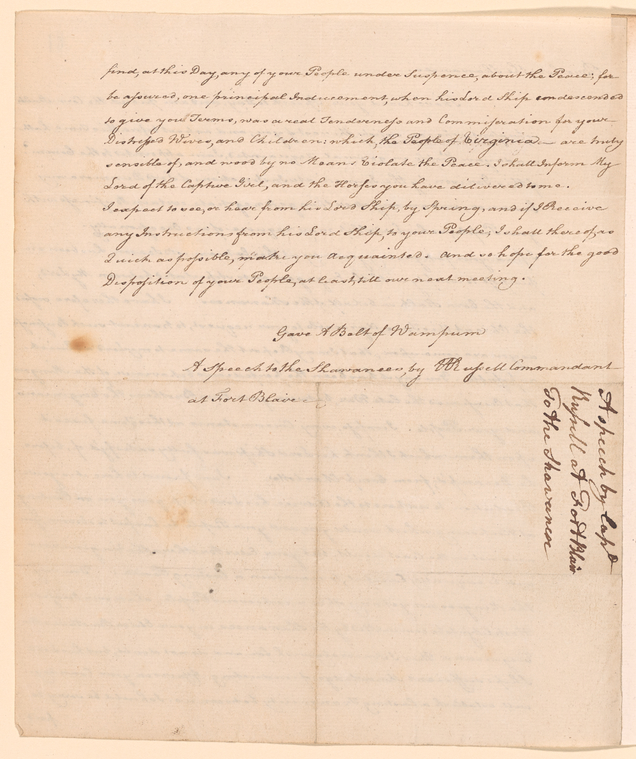 find, at this Day, any of your People under Suspence, about the Peace; for
be assured, one principal Inducement, when his Lord Ship condescended
to give you Terms, was a real Tenderness and Commiseration for your
Distress'd Wives, and Children; which, the People of Verginia are truly
sensible of, and wood by no Means Violate the Peace. I shall Inform My
Lord of the Captive Girl, and the Horses you have delivered to me.
I expect to see, or hear from his Lord Ship, by Spring, and if I Receive
any Instructions from his Lord Ship, to your People, I shall thereof, as
Quick as possible, make you Acquainted. and so hope for the good
Disposition of your People, at least, till our next meeting.
Gave A Belt of Wampum
A Speech to the Shawanees, by WRussell Commandant
at Fort Blaire
A speech by Capt
Russell at Fort Blair
To the Shawanese